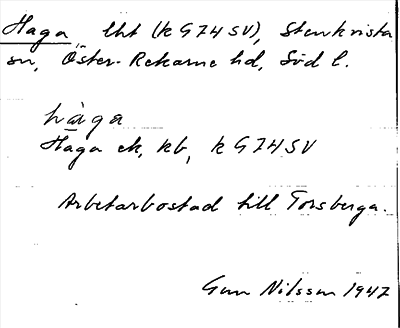 Haga, lht (k G74SV), Stenkvista
sn, Öster-Rekarne hd, Söd l.
hàga
Haga ek, kb, k G74SV
Arbetarbostad till Torsberga.
Gun Nilsson 1947